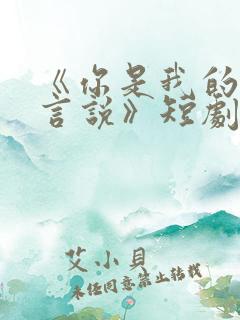 《你是我的
言說》短劇
艾小貝
未任同意禁止轉載